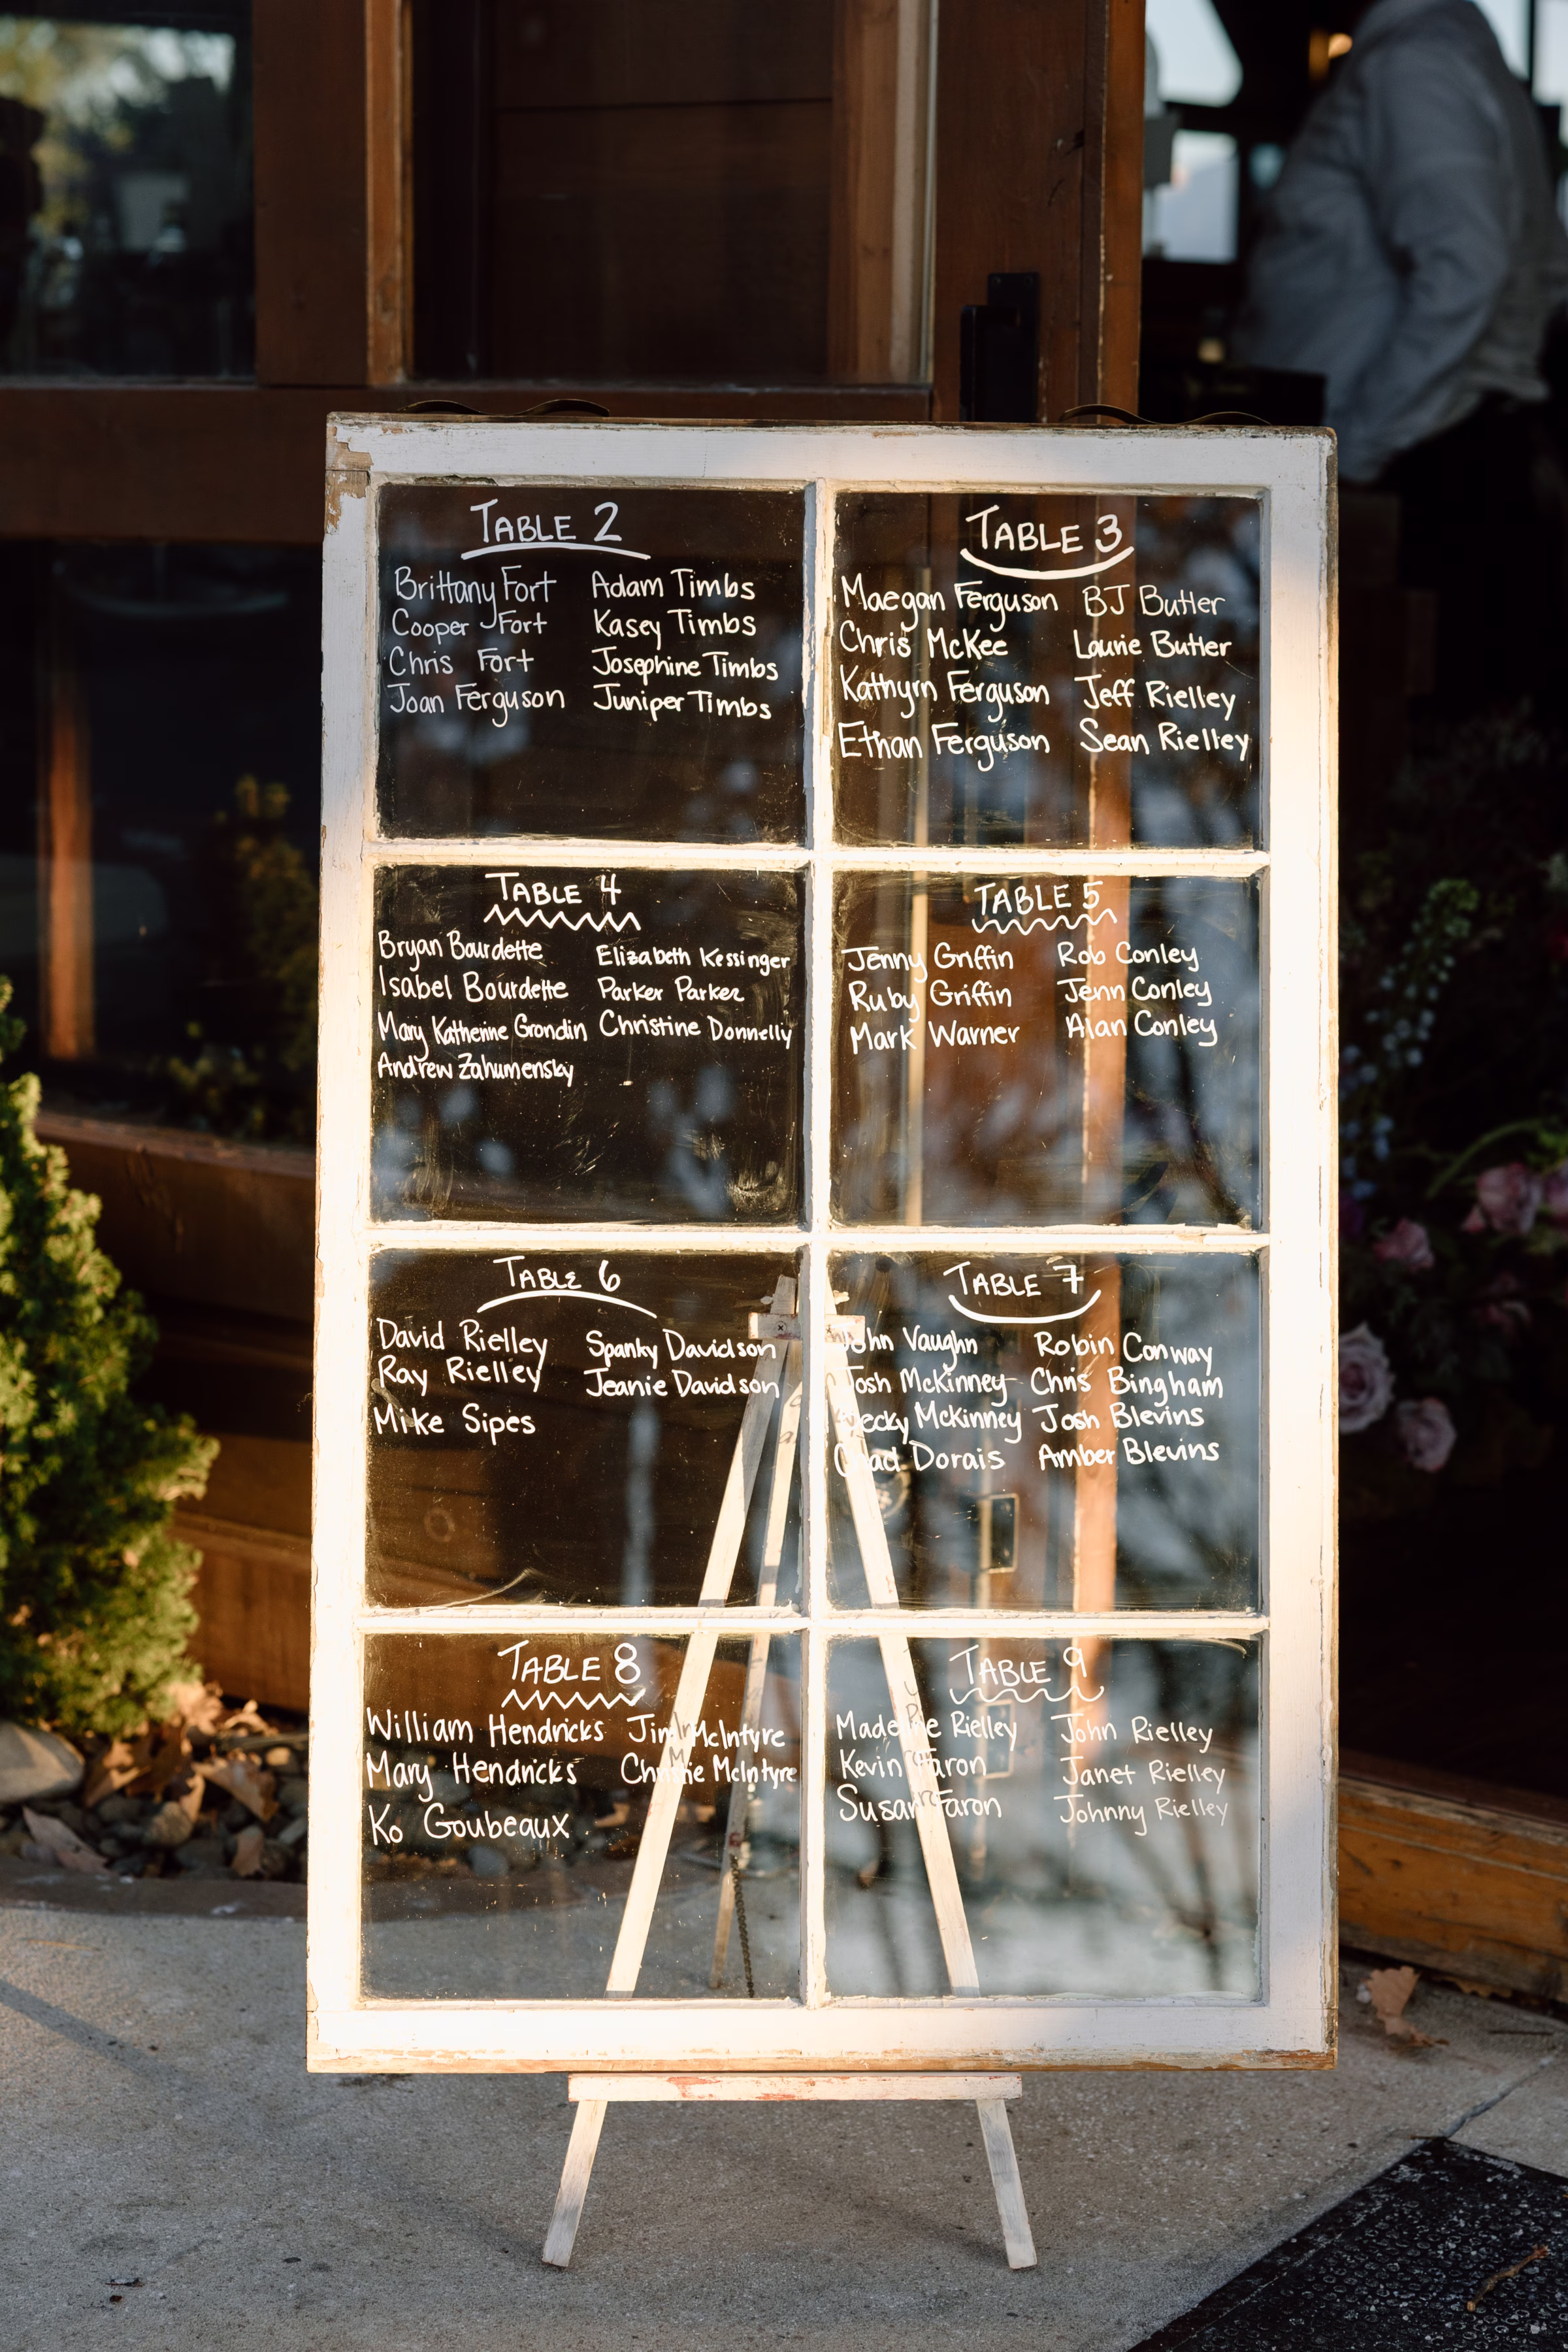 TABLE 2
Brittany Fort
Cooper Fort
Chris Fort
Joan Ferguson
Adam Timbs
Kasey Timbs
Josephine Timbs
Juniper Timbs
TABLE 3
Maegan Ferguson
Chris McKee
Kathyrn Ferguson
Ethan Ferguson
BJ Butler
Laurie Butler
Jeff Rielley
Sean Rielley
TABLE 4
Bryan Bourdette
Isabel Bourdette
Mary Katherine Grondin
Andrew Zahumensky
Elizabeth Kessinger
Parker Parker
Christine Donnelly
TABLE 5
Jenny Griffin
Ruby Griffin
Mark Warner
Rob Conley
Jenn Conley
Alan Conley
TABLE 6
David Rielley
Ray Rielley
Mike Sipes
Spanky Davidson
Jeanie Davidson
TABLE 7
John Vaughn
Josh McKinney
McKinney
Chad Dorais
Robin Conway
Chris Bingham
Josh Blevins
Amber Blevins
TABLE 8
William Hendricks
Mary Hendricks
Ko Goubeaux
Jim McIntyre
Christie McIntyre
TABLE 9
Rielley
Kevin Faron
Susan Faron
John Rielley
Janet Rielley
Johnny Rielley